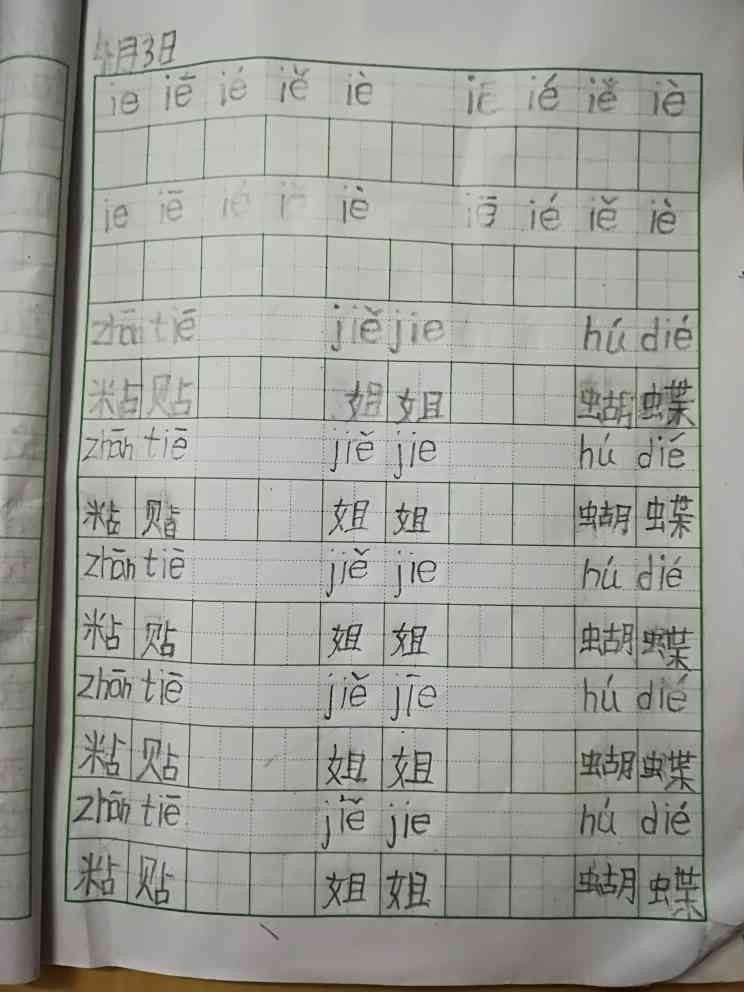 4月3日
ie iē ié iě iè iē ié iě iè
ie iē ié iě iè iē ié iě iè
zhān tiē jiě jie hú dié
粘贴 姐姐 蝴蝶
zhān tiē jiě jie hú dié
粘贴 姐姐 蝴蝶
zhān tiē jiě jie hú dié
粘贴 姐姐 蝴蝶
zhān tiē jiě jīe hú dié
粘贴 姐姐 蝴蝶
zhān tiē jiě jie hú dié
粘贴 姐姐 蝴蝶